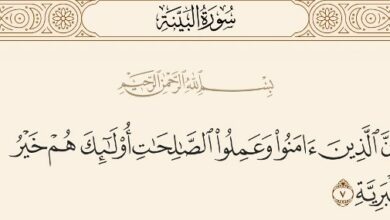 سُورَةُ الْبَيِّنَةِ
بِسْمِ اللَّهِ الرَّحْمَٰنِ الرَّحِيمِ
نَّ الَّذِينَ ءَامَنُوا۟ وَعَمِلُوا۟ الصَّـٰلِحَـٰتِ أُو۟لَـٰٓئِكَ هُمْ خَيْرُ
بَرِيَّةِ ٧